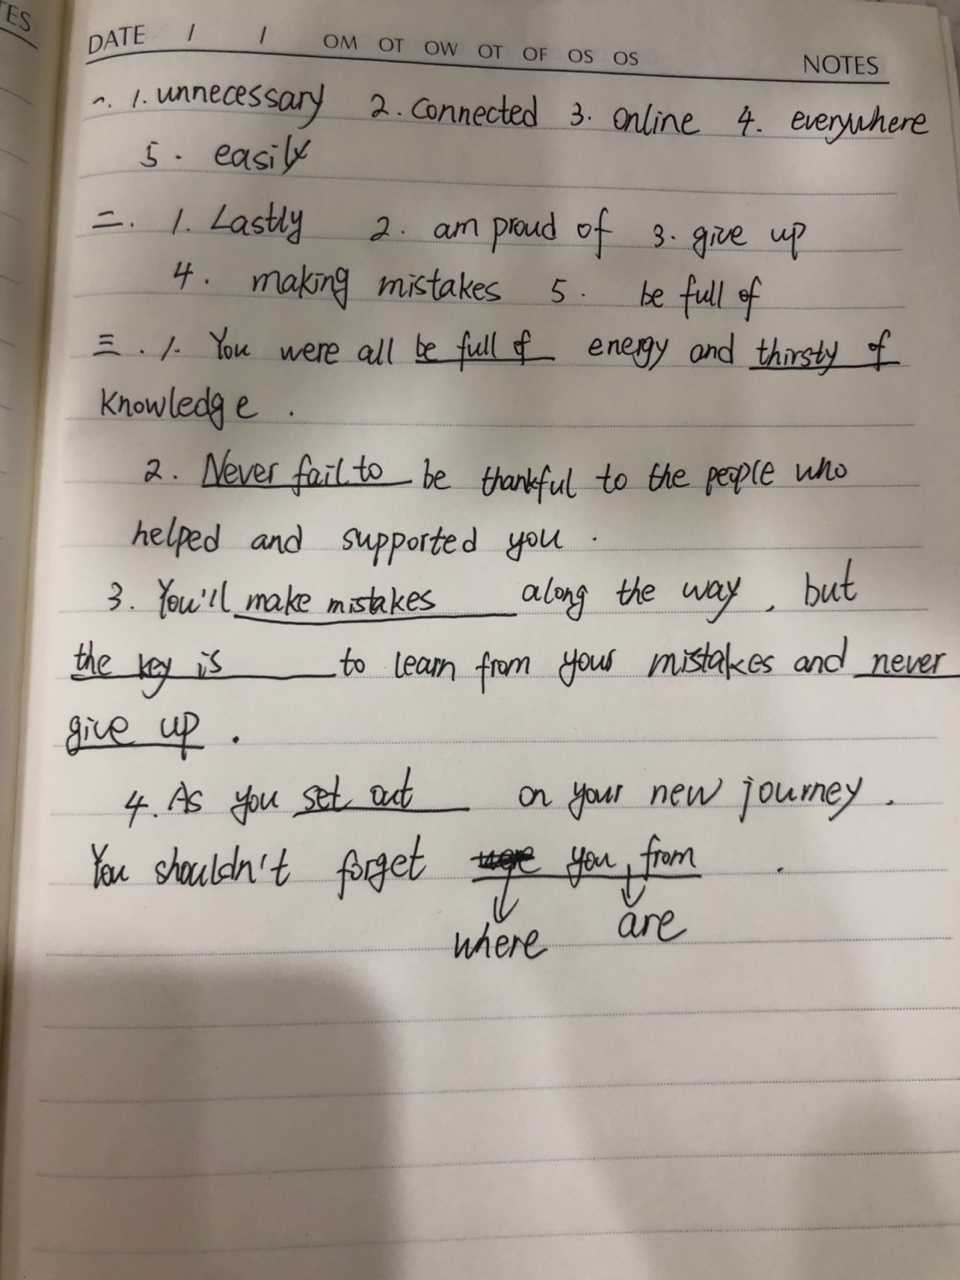 TES
DATE / / OM OT OW OT OF OS OS NOTES
一. 1. unnecessary 2. Connected 3. Online 4. everywhere
5. easily
二. 1. Lastly 2. am proud of 3. give up
4. making mistakes 5. be full of
三. 1. You were all be full of energy and thirsty of
knowledge .
2. Never fail to be thankful to the people who
helped and supported you .
3. You'll make mistakes along the way , but
the key is to learn from your mistakes and never
give up .
4. As you set out on your new journey .
You shouldn't forget you from .
where are